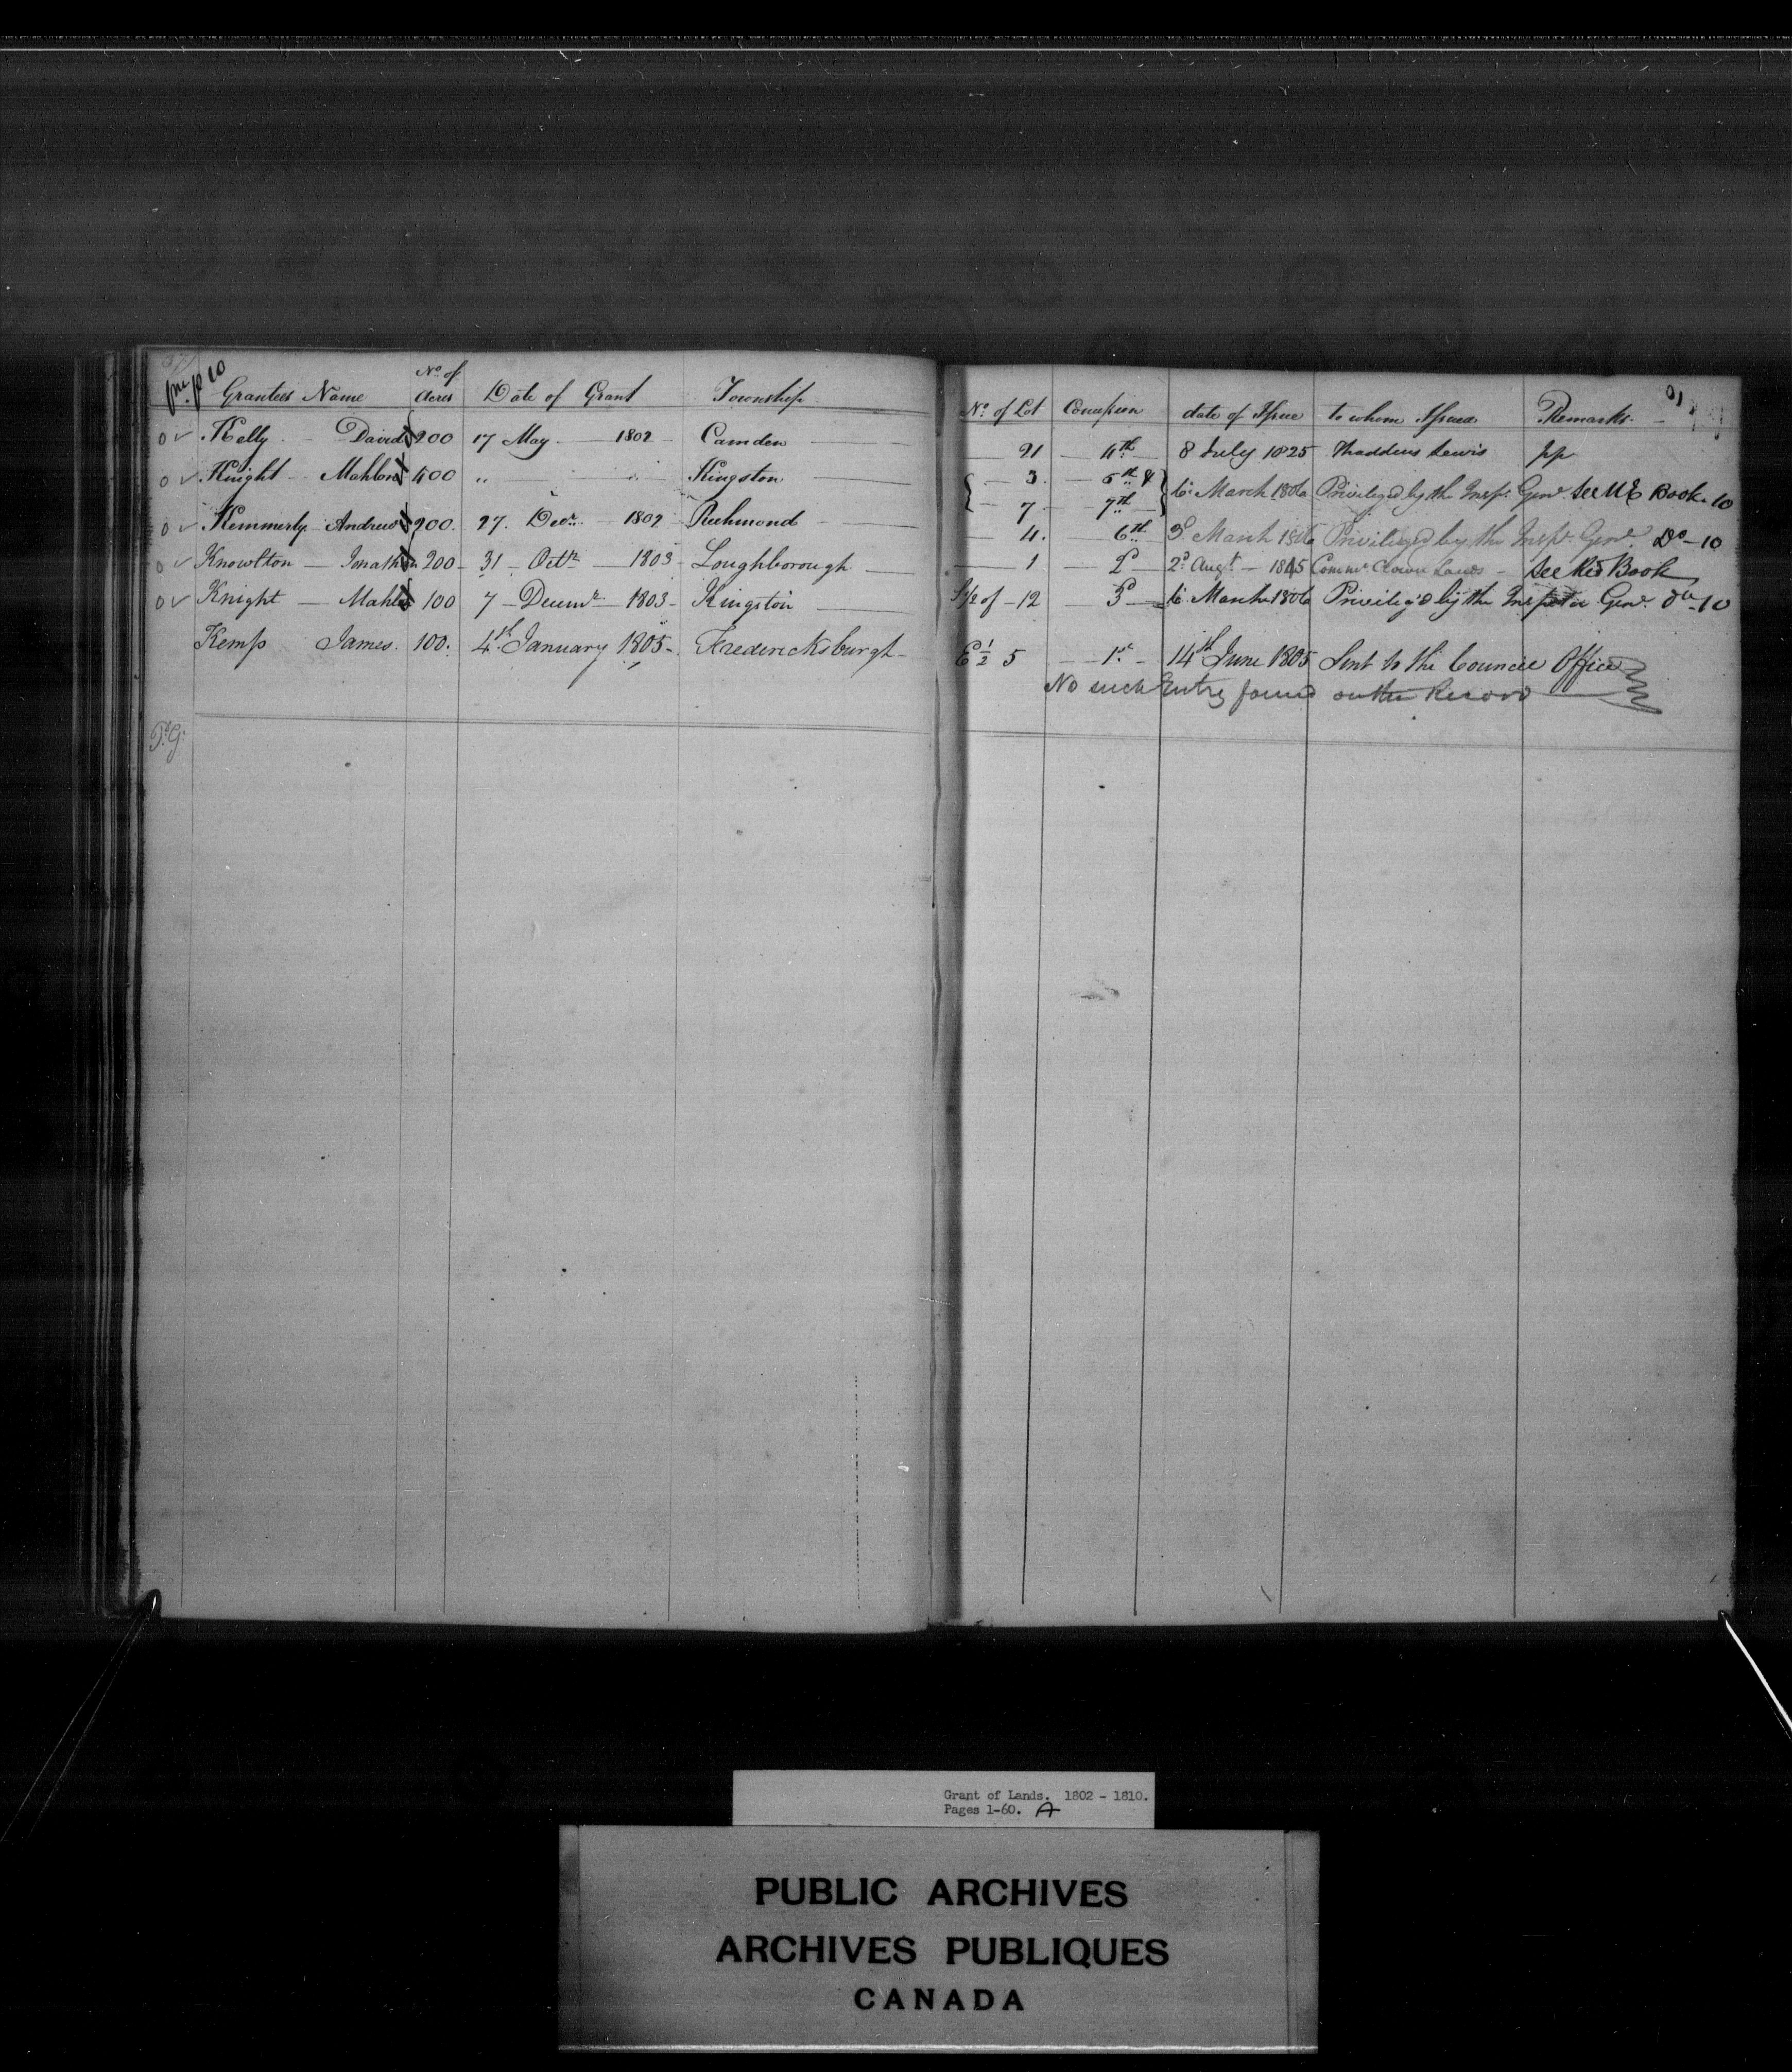 Grantees Name | No. of Acres | Date of Grant | Township | No. of Lot | Concession | date of Issue | to whom Issued | Remarks.
0 ✓ Kelly David 200 17 May 1802 Camden 21 4th 8 July 1825 Thaddeus Lewis
0 ✓ Knight Mahlon 400 " " Kingston { 3. 5th & } 6. March 1806 Privileged by the Insp. Genl. See UE Book 10
7 7th
0 ✓ Kemmerly Andrew 200. 27. Decr. 1802 Richmond 4. 6th 3d. March 1806 Privileged by the Inspr. Genl. Do 10
0 ✓ Knowlton Jonathan 200 31 Octr 1803 Loughborough 1 2d 2d. Augt. 1845 Commr. Crown Lands See Book
0 ✓ Knight Mahlon 100 7 Decemr 1803 Kingston S½ of 12 3d 6. March 1806 Privileg'd by the Inspector Genl. do 10
Kemp James. 100. 4th January 1805 Fredericksburgh E ½ 5 1st 14th June 1805 Sent to the Council Office
No such Entry found on the Record
Grant of Lands. 1802 - 1810.
Pages 1-60. A
PUBLIC ARCHIVES
ARCHIVES PUBLIQUES
CANADA